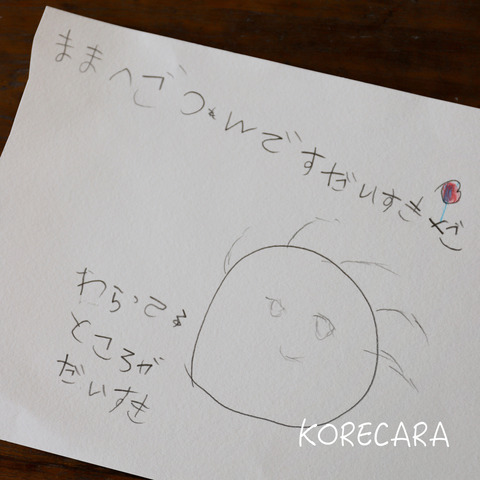 ままへ
だいすき
わらってる
ところが
だいすき
KORECARA